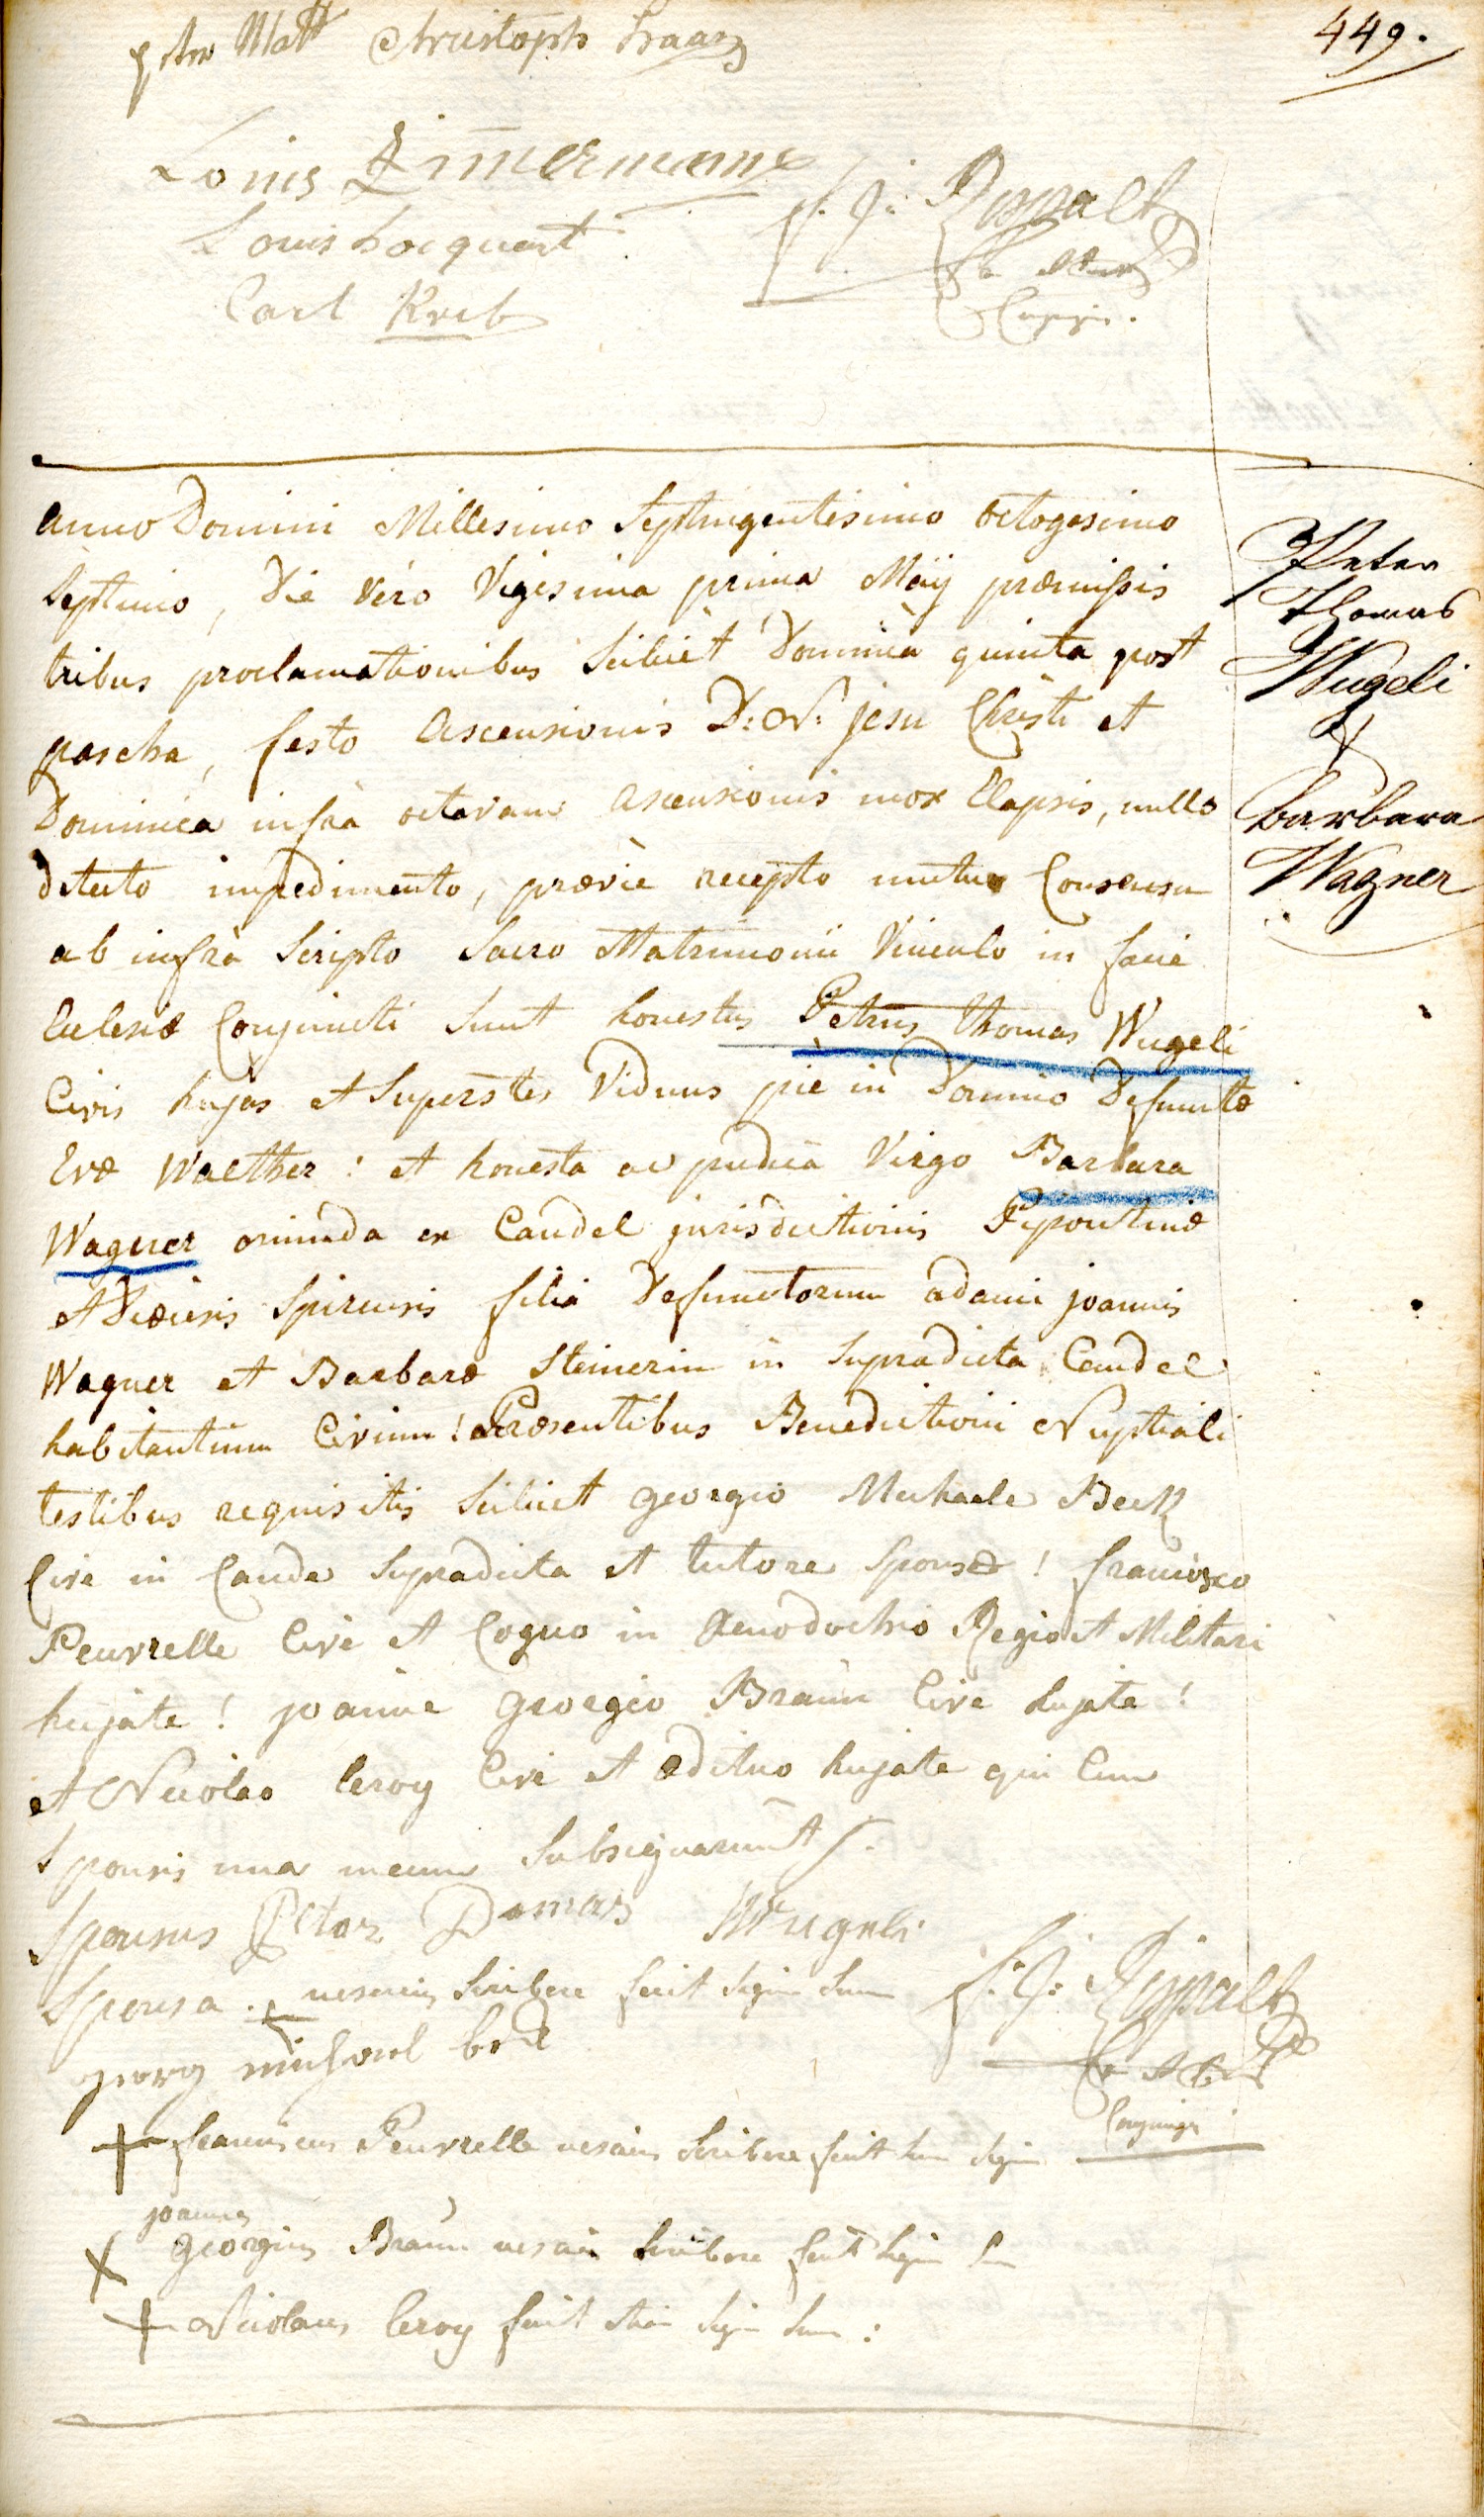 449.
peter Matt Christoph Haas
Louis Zimermann
Louis hocquart
F. J. Rippalt
Carl Kreb
anno Domini Millesimo Septingentesimo octogesimo
Septimo, Die Vero Vigesima prima Maÿ præmissis
tribus proclamationibus Scilicet Dominica quinta post
pascha, festo Ascensionis D: N: jesu Christi et
Dominica infra octavam Ascensionis mox Elapsis, nullo
detecto impedimento, prævie recepto mutuo Consensu
ab infra Scripto Sacro Matrimonii Vinculo in facie
Eclesiæ Conjuncti Sunt honestus Petrus thomas Wugeli
Civis hujas et Superstes Viduus pie in Domino Defunctæ
Evæ Walther : et honesta ac pudica Virgo Barbara
Wagner oriunda ex Candel jurisdictionis Bipontinæ
et Diœcesis Spirensis filia Defunctorum adami joannis
Wagner et Barbaræ Steinerin in Supradicta Candel
habitantium Civium ! Præsentibus Benedictioni Nuptiali
testibus requisitis Scilicet georgio Michaele Beck
Cive in Candel Supradicta et tutore Sponsæ ! francisco
Peurrelle Cive et Coquo in Xenodochio Regio et Militari
hujate ! joanne georgio Braun Cive hujate !
et Nicolao leroy Cive et ædituo hujate qui Cum
Sponsis una mecum Subsignarunt
Sponsus Peter Domas Wugeli
Sponsa + nesciens Scribere fecit Signum Suum
F. J. Rippalt
georg michael beck
+ franciscus Peurrelle nesciens Scribere fecit Suum Signum
joannes
X georgius Braun nesciens Scribere fecit Signum Suum
+ Nicolaus leroy fecit etiam Signum Suum :
Peter
Thomas
Wugeli
&
barbara
Wagner